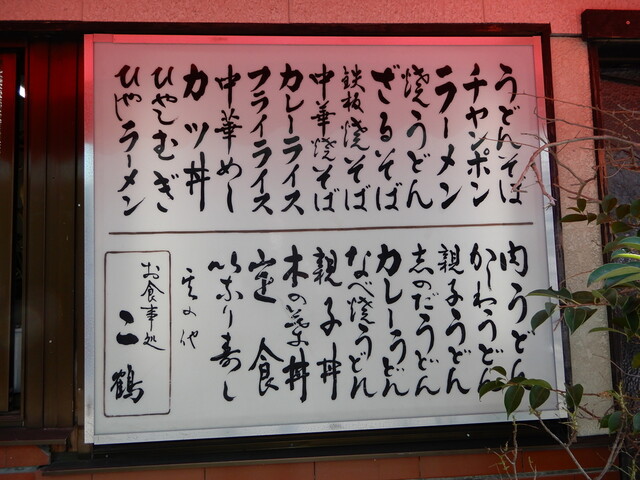 うどんそば
チャンポン
ラーメン
焼うどん
ざるそば
鉄板焼そば
中華焼そば
カレーライス
フライライス
中華めし
カツ丼
ひやしむぎ
ひやラーメン
肉うどん
かしわうどん
親子うどん
志のだうどん
カレーうどん
なべ焼うどん
親子丼
木の葉丼
定食
いなり寿し
其の他
お食事処
二鶴